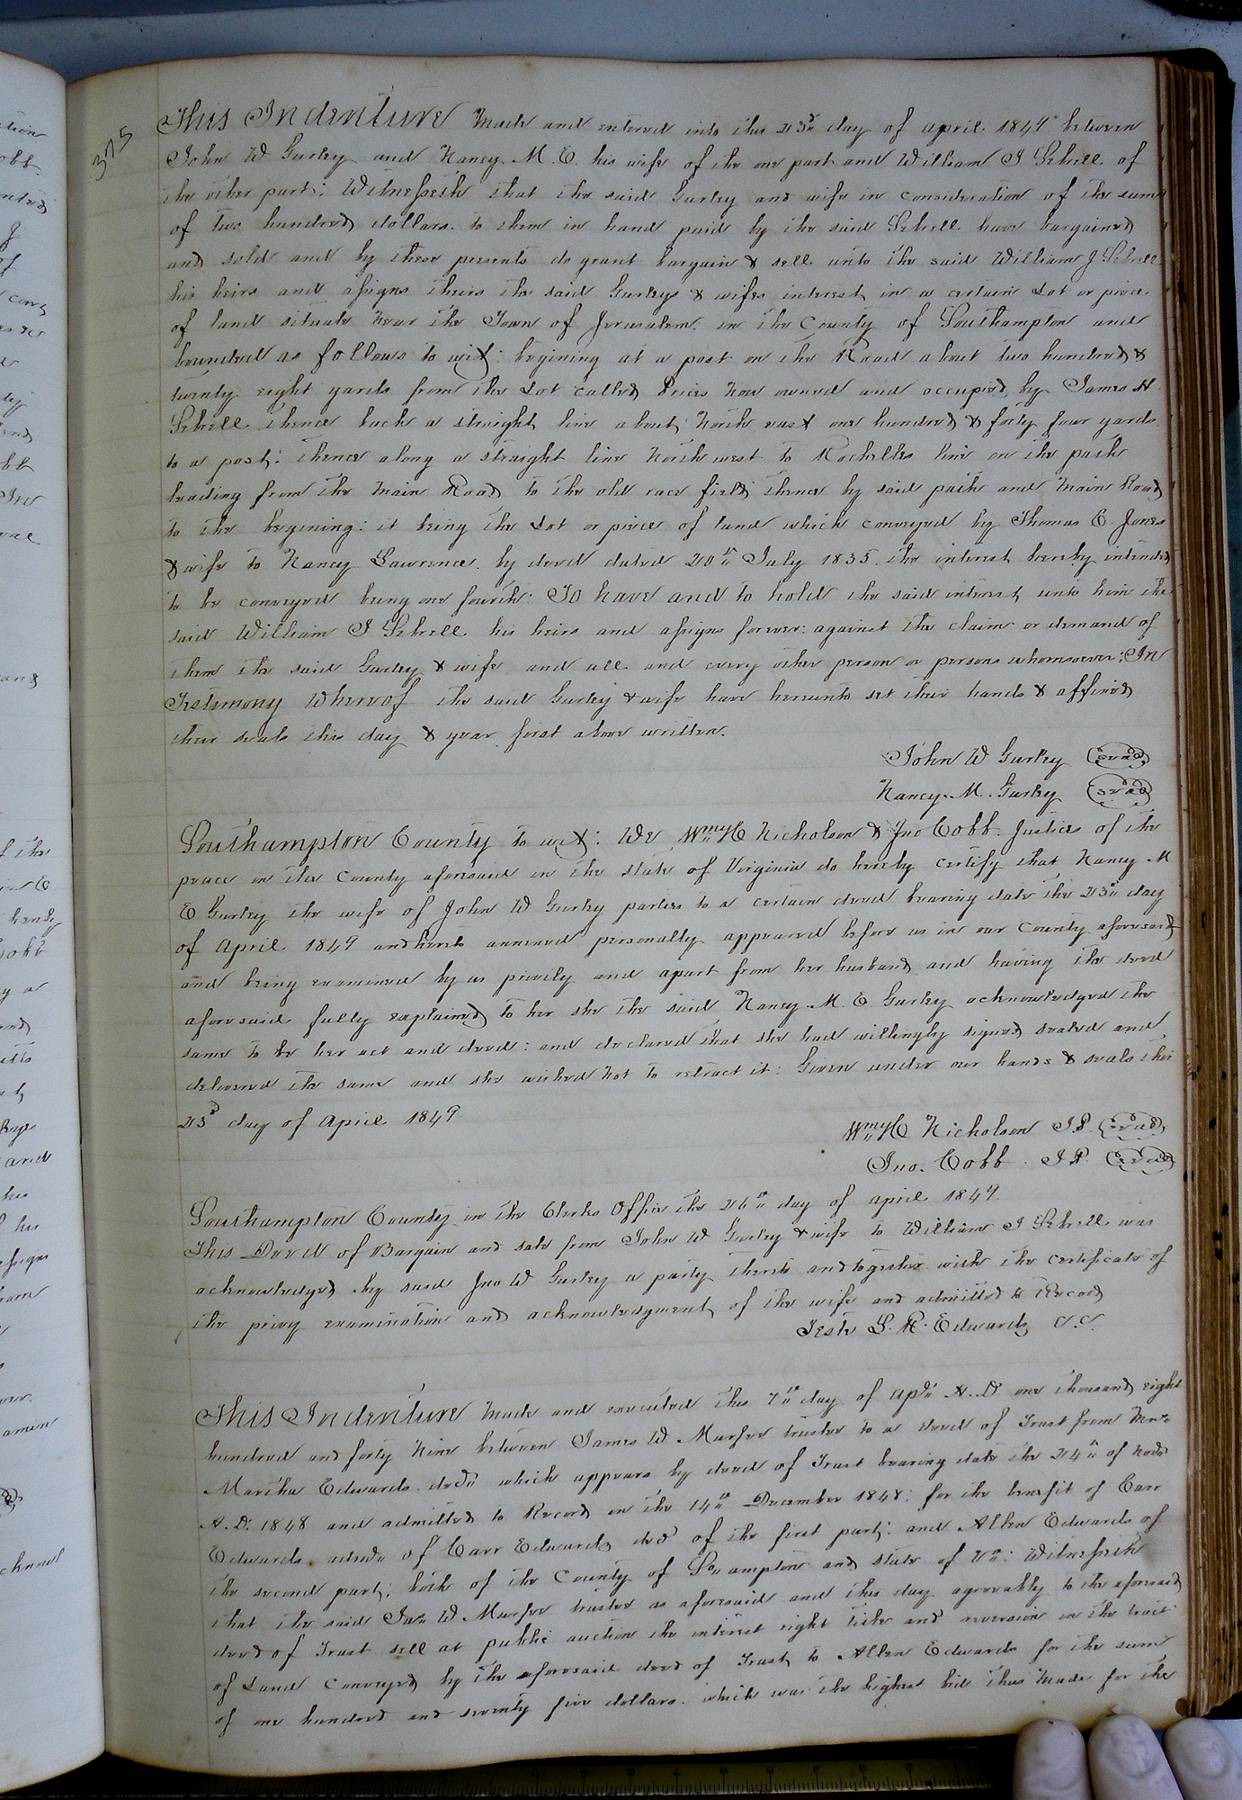 375
This Indenture Made and entered into this 23d day of April 1849 between
John W Gurley and Nancy. M. E. his wife of the one part and William J Sebrell of
the other part: Witnesseth that the said Gurley and wife in consideration of the sum
of two hundred dollars. to them in hand paid by the said Sebrell have bargained
and sold and by these presents do grant bargain & sell unto the said William J Sebrell
his heirs and assigns theirs the said Gurleys & wifes interest in a certain Lot or piece
of land situate Near the Town of Jerusalem. in the County of Southampton and
bounded as follows to wit: begining at a post on the Road about two hundred &
twenty eight yards from the Lot called Prices Now owned and occupied by James H
Sebrell thence back a straight line about North east one hundred & forty four yards
to a post: thence along a straight line North west to Rochelles line on the path
leading from the Main Road to the old race field thence by said path and Main Road
to the begining: it being the Lot or piece of land which conveyed by Thomas C Jones
& wife to Nancy Lawrence. by deed dated 20th July 1835. the interest hereby intended
to be conveyed being one fourth: To have and to hold the said interest unto him the
said William J Sebrell his heirs and assigns forever: against the claim or demand of
them the said Gurley & wife and all and every other person or persons whomsoever: In
Testimony Whereof the said Gurley & wife have hereunto set their hands & affixed
their seals this day & year first above written.
John W Gurley (Seal)
Nancy. M. Gurley (Seal)
Southampton County to wit: We Wm H C Nicholson & Jno Cobb. Justices of the
peace in the County aforesaid in the state of Virginia do hereby certify that Nancy M
E Gurley the wife of John W Gurley parties to a certain deed bearing date the 23d day
of April 1849 and hereto annexed personally appeared before us in our County aforesaid
and being examined by us privily and apart from her husband and having the deed
aforesaid fully explained to her she the said Nancy. M. E Gurley acknowledged the
same to be her act and deed: and declared that she had willingly signed sealed and
delivered the same and she wished Not to retract it: Given under our hands & seals this
23d day of April 1849
Nicholson J.P. (Seal)
Jno. Cobb. J.P. (Seal)
Southampton County in the Clerks Office the 26th day of April 1849.
This Deed of Bargain and sale from John W Gurley & wife to William J Sebrell was
acknowledged by said Jno W Gurley a party thereto and together with the certificate of
the privy examination and acknowledgment of the wife and admitted to Record
Teste L. R. Edwards C.C.
This Indenture Made and executed this 7th day of Apl A. D. one thousand eight
hundred and forty Nine between James W Murfee trustee to a deed of Trust from Mrs
Martha Edwards. decd which appears by deed of Trust bearing date the 24th of Nov
A. D. 1848 and admitted to Record on the 14th December 1848: for the benefit of Carr
Edwards admr of Carr Edwards decd of the first part: and Allen Edwards of
the second part: both of the County of Soampton and state of Va: Witnesseth
that the said Jas W Murfee trustee as aforesaid and this day agreeably to the aforesaid
deed of Trust sell at public auction the interest right title and reversion in the tract
of Land conveyed by the aforesaid deed of Trust to Allen Edwards for the sum
of one hundred and seventy five dollars. which was the highest bid thus Made for the